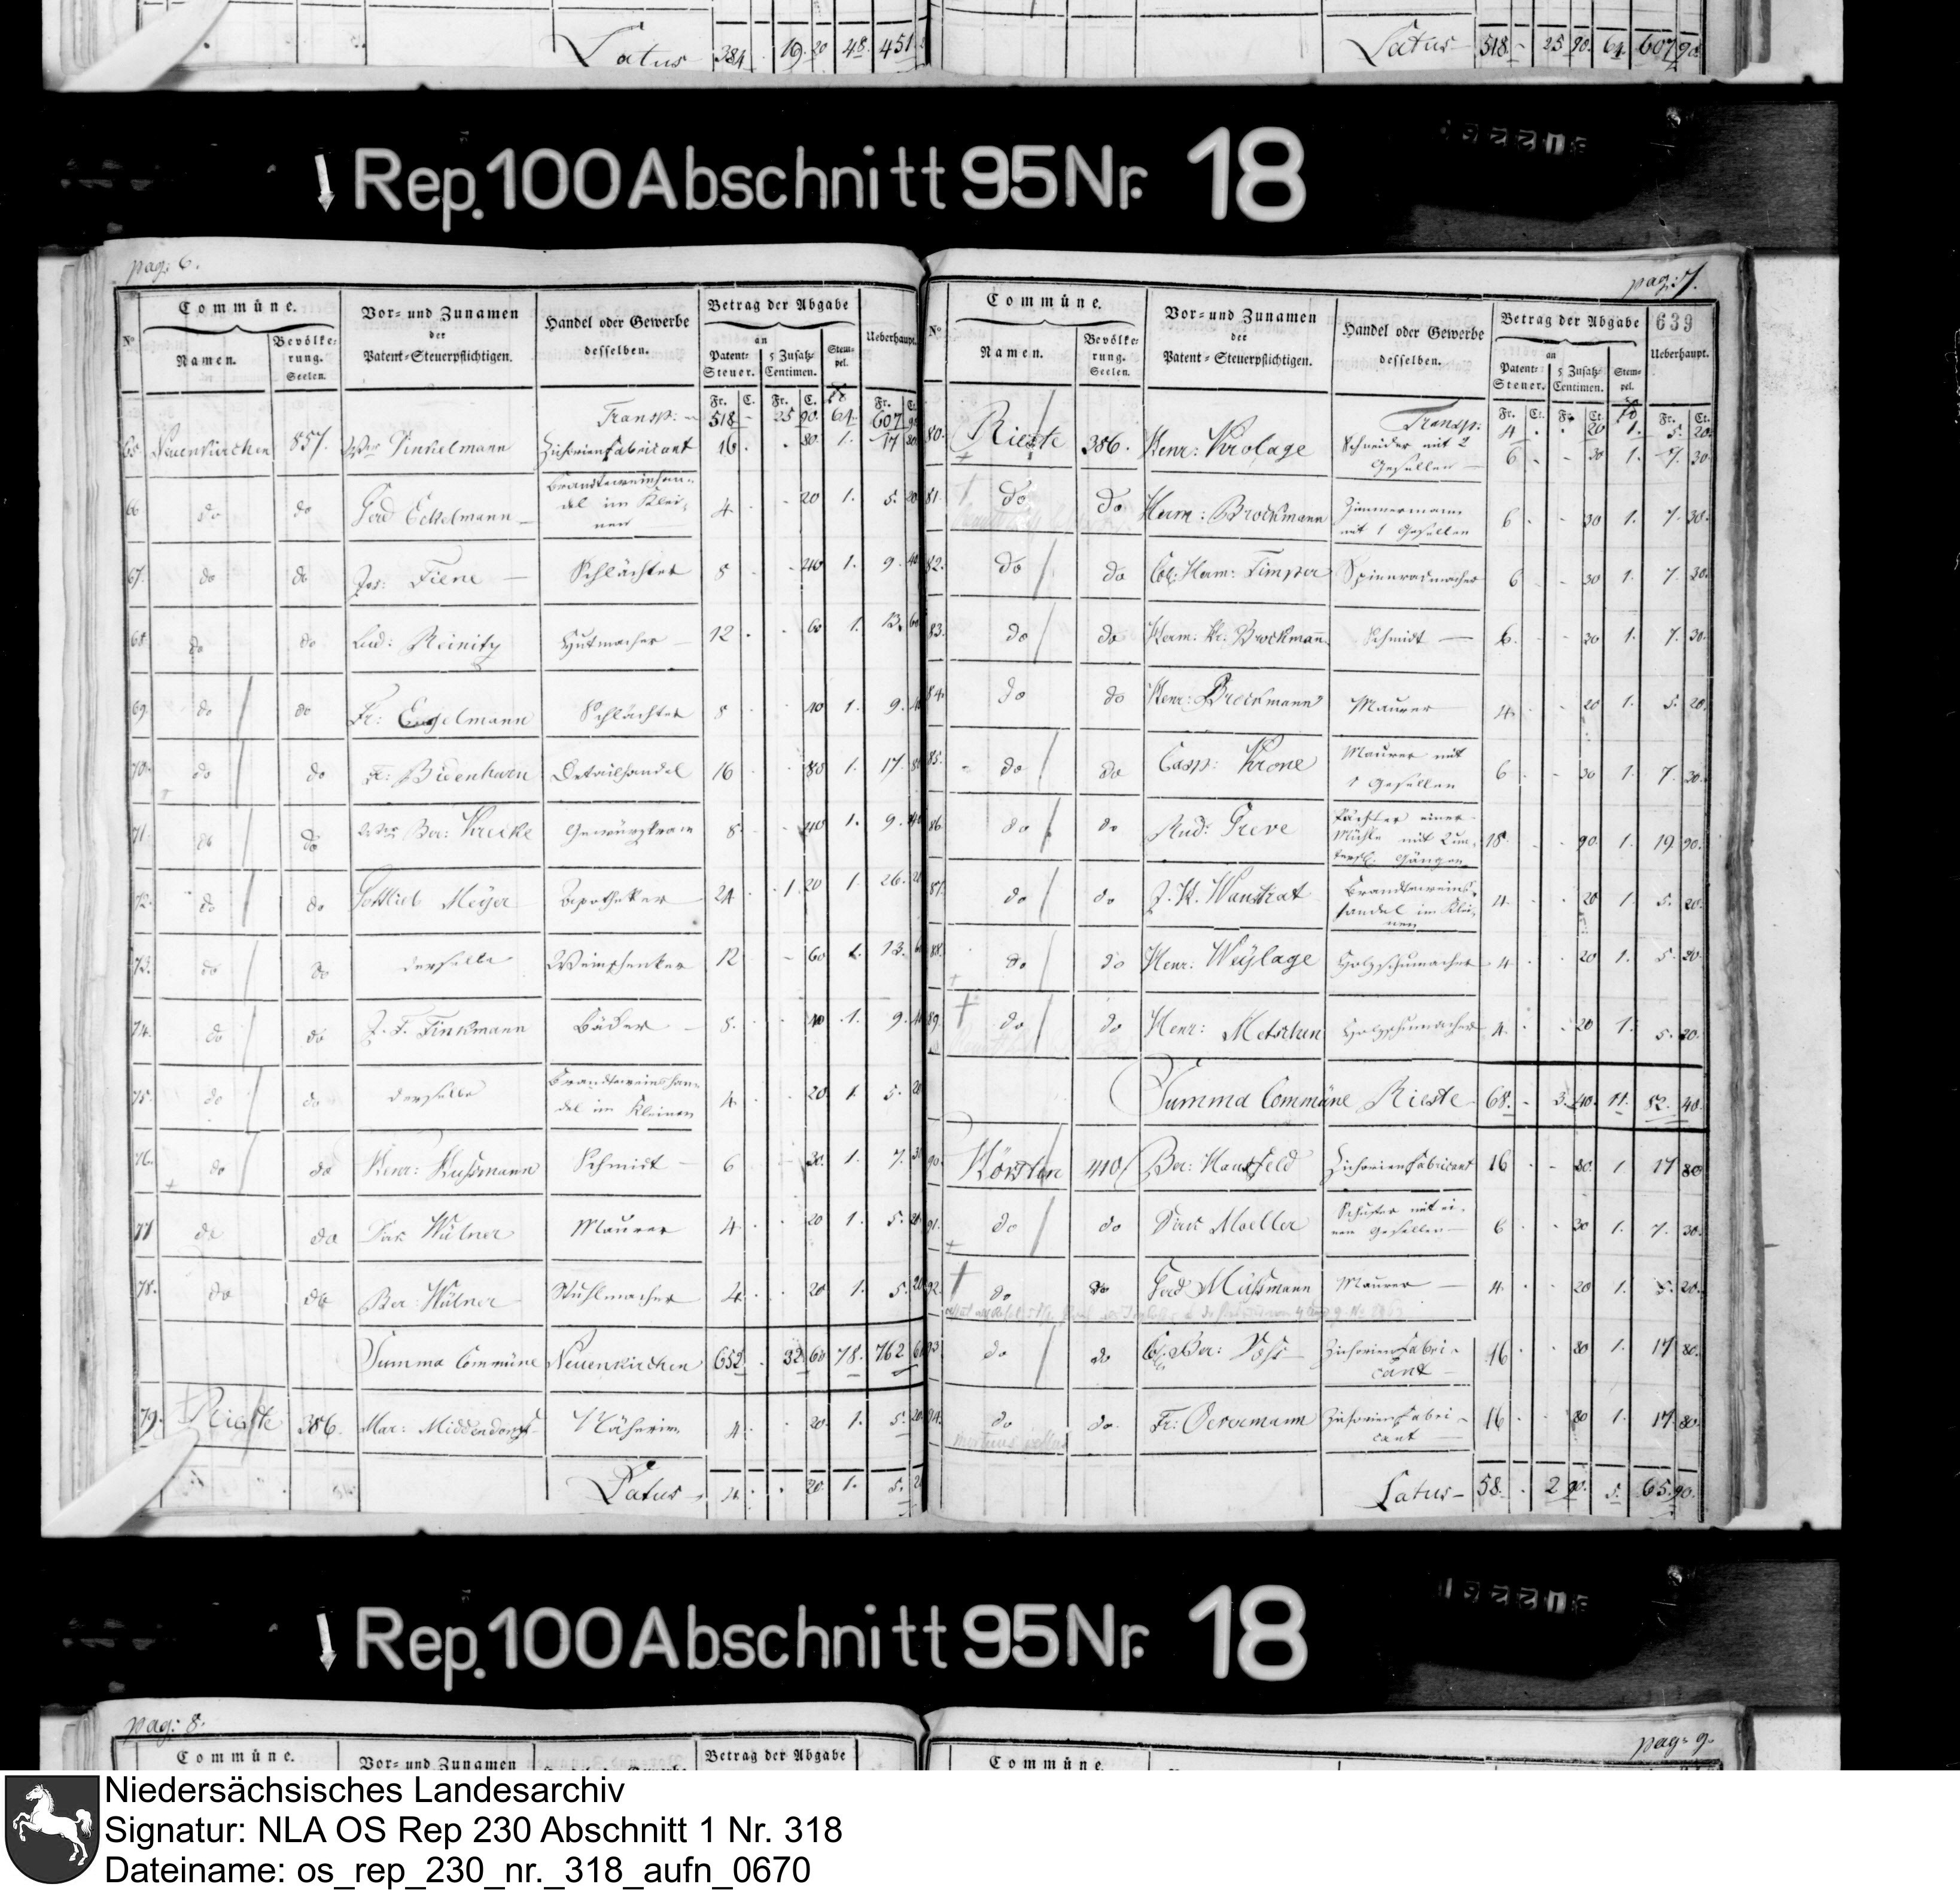 Latus 384 19 20 48 451
Latus 518 25 90 64 607 90
Rep. 100 Abschnitt 95 Nr. 18
pag: 6.
No
Commüne.
Namen.
Bevölke-
rung.
Seelen.
Vor- und Zunamen
der
Patent-Steuerpflichtigen.
Handel oder Gewerbe
desselben.
Betrag der Abgabe
an
Patent-
Steuer.
5 Zusatz-
Centimen.
Stem-
pel.
Ueberhaupt.
Fr. C. Fr. C. Fr. Ct.
Transp: 518 25 90 64 607 90
65. Neuenkirchen 857. Zichorienfabricant 16 80 1. 17 80
66 do do Gerd Eckelmann Brandteweinhan-
del im Klei-
nen 4 20 1. 5. 20
67. do do Jos: Fiene Schlächter 8 40 1. 9. 40
68. do do Lud: Reinitz Hutmacher 12 60 1. 13. 60
69. do do Fr: Engelmann Schlächter 8 40 1. 9. 40
70. do do Fr: Bidenharn Detailhandel 16 80 1. 17. 80
71. do do Ber: Kruke Gewürzkram 8 40 1. 9. 40
72. do do Gottlieb Meÿer Apotheker 24 1 20 1. 26. 20
73. do do derselbe Weinschenker 12 60 1. 13. 60
74. do do J. F. Finkmann Bäcker 8 40 1. 9. 40
75. do do derselbe Brandteweinshan-
del im Kleinen 4 20 1. 5. 20
76. do do Henr: Kußmann Schmidt 6 30 1. 7. 30
77 do do Wülner Maurer 4 20 1. 5. 20
78. do do Ber: Wülner Stuhlmacher 4 20 1. 5. 20
Summa Commüne Neuenkirchen 652 32 60 78. 762 60
79. Rieste 386. Mar: Middendorf Näherin 4 20 1. 5. 20
Latus 4 20 1. 5. 20
pag: 7.
639
No
Commüne.
Namen.
Bevölke-
rung.
Seelen.
Vor- und Zunamen
der
Patent-Steuerpflichtigen.
Handel oder Gewerbe
desselben.
Betrag der Abgabe
an
Patent-
Steuer.
5 Zusatz-
Centimen.
Stem-
pel.
Ueberhaupt.
Fr. Ct. Fr. Ct. Fr. Ct.
Transp: 4 20 1. 5. 20
80. Rieste 386. Henr: Krolage Schneider mit 2
Gesellen 6 30 1. 7. 30
81. do do Herm: Brockmann Zimmermann
mit 1 Gesellen 6 30 1. 7. 30
82. do do Col: Herm: Timper Spinnradmacher 6 30 1. 7. 30
83. do do Herm: Hr: Brockmann Schmidt 6 30 1. 7. 30
84. do do Henr: Brockmann Maurer 4 20 1. 5. 20
85. do do Casp: Krone Maurer mit
1 Gesellen 6 30 1. 7. 30
86 do do Rud: Greve Pächter einer
Mühle mit
Gängen 18 90 1. 19 90
87. do do J. H. Wanstrat Brandteweins-
handel im Klei-
nen 4 20 1. 5. 20
88. do do Henr: Weÿlage Holzschumacher 4 20 1. 5. 20
89. do do Henr: Metschen Holzschumacher 4 20 1. 5. 20
Summa Commüne Rieste 68. 3. 40. 11. 82. 40.
90. Hörsten 410 Ber: Hausfeld Zichorienfabricant 16 80 1 17 80
91. do do Dirk Moeller Schuster mit ei-
nem Gesellen 6 30 1. 7. 30
92. do do Gerd Mußmann Maurer 4 20 1. 5. 20
93 do do Col: Ber: Voß Zichorienfabri-
cant 16 80 1. 17 80
94. do do Fr: Oevermann Zichorienfabri-
cant 16 80 1. 17 80
Latus 58. 2 90. 5. 65. 90.
Rep. 100 Abschnitt 95 Nr. 18
pag: 8.
Commüne.
Vor- und Zunamen
Betrag der Abgabe
pag: 9.
Commüne.
Niedersächsisches Landesarchiv
Signatur: NLA OS Rep 230 Abschnitt 1 Nr. 318
Dateiname: os_rep_230_nr._318_aufn_0670